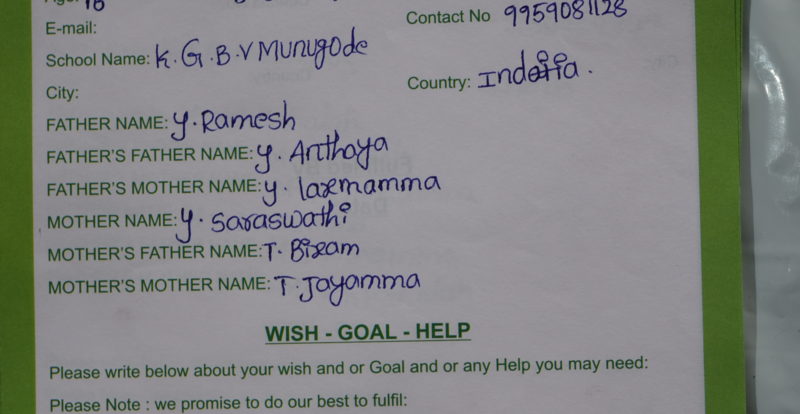 Age: 16
Contact No 9959081128
E-mail:
School Name: K.G.B.V Munugode
Country: India.
City:
FATHER NAME: Y. Ramesh
FATHER'S FATHER NAME: Y. Anthaya
FATHER'S MOTHER NAME: Y. laxmamma
MOTHER NAME: Y. Saraswathi
MOTHER'S FATHER NAME: T. Bixam
MOTHER'S MOTHER NAME: T. Jayamma
WISH - GOAL - HELP
Please write below about your wish and or Goal and or any Help you may need:
Please Note : we promise to do our best to fulfil: